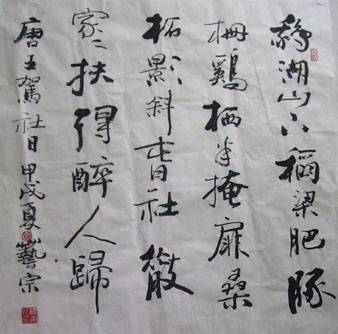 鹅湖山下稻粱肥豚
栅鷄栖半掩扉桑
柘影斜春社散
家々扶得醉人歸
唐王駕社日甲戌夏藝宗